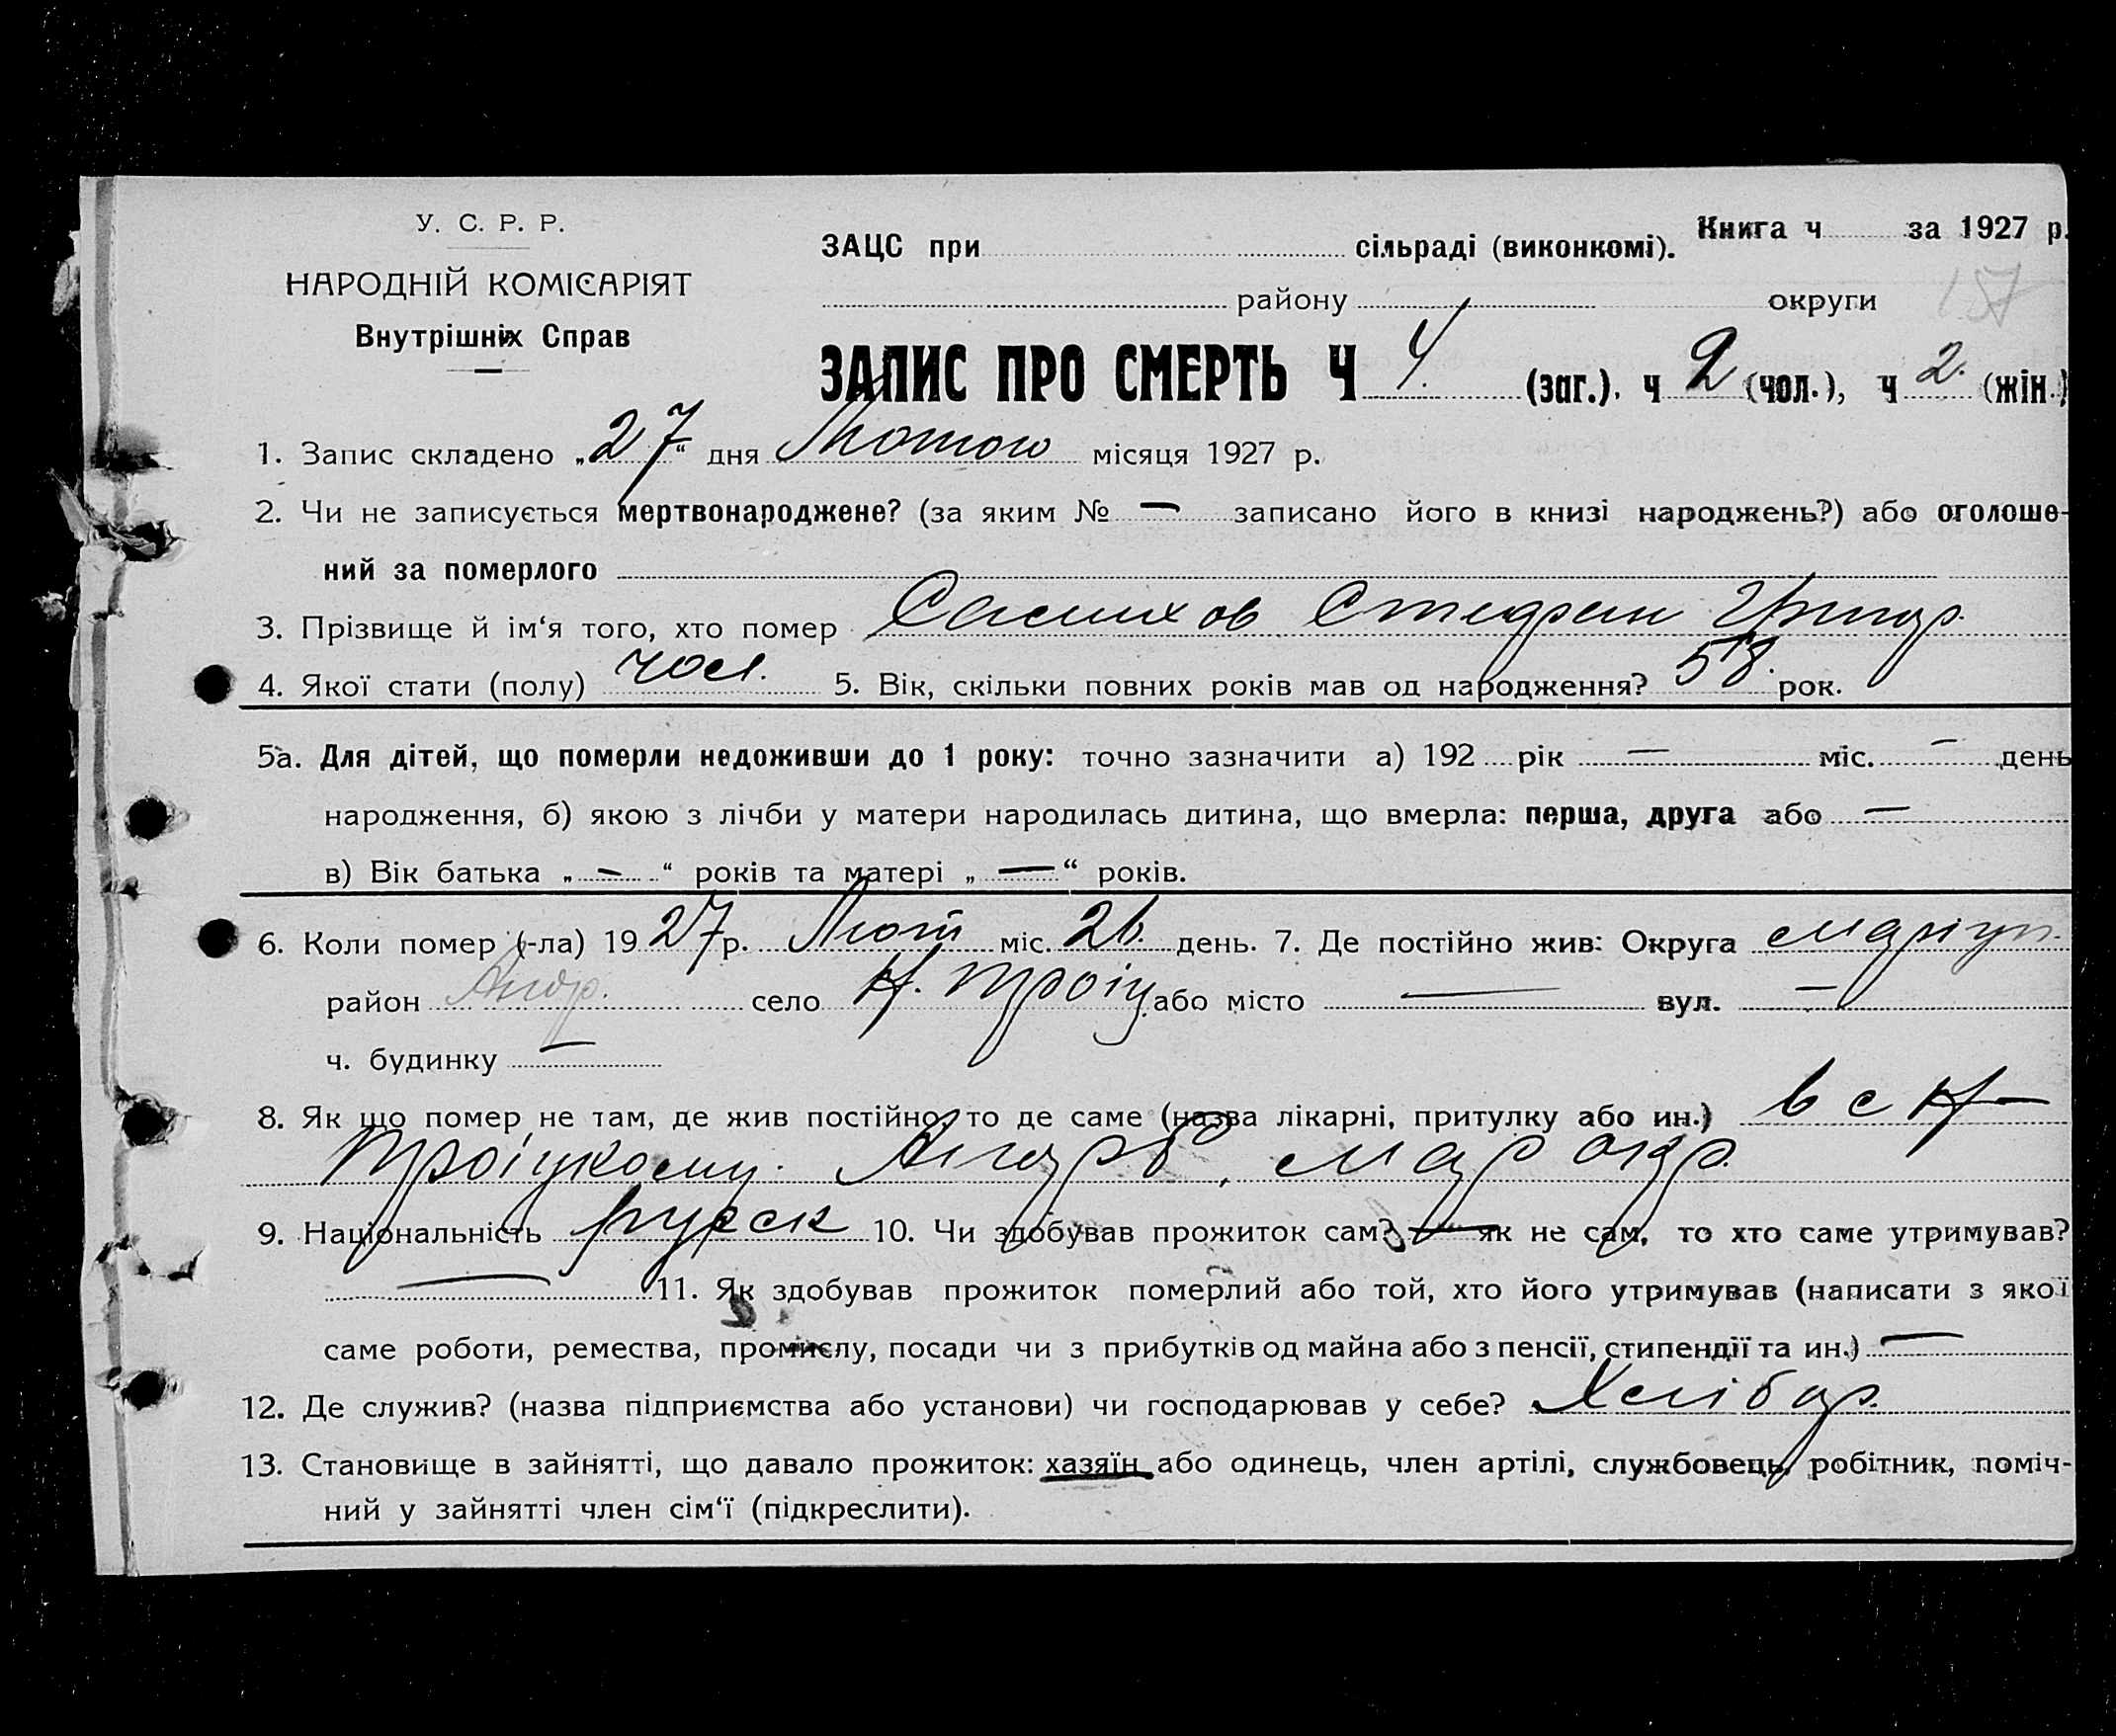 У. С. Р. Р.
НАРОДНІЙ КОМІСАРІЯТ
Внутрішніх Справ
ЗАЦС при сільраді (виконкомі). Книга ч за 1927 р.
району округи 157
ЗАПИС ПРО СМЕРТЬ Ч 4. (заг.), ч 2 (чол.), ч 2. (жін.)
1. Запис складено „27“ дня Лютого місяця 1927 р.
2. Чи не записується мертвонароджене? (за яким № — записано його в книзі народжень?) або оголоше-
ний за померлого
3. Прізвище й ім‘я того, хто помер Стефан
4. Якої стати (полу) чол. 5. Вік, скільки повних років мав од народження? 58. рок.
5а. Для дітей, що померли недоживши до 1 року: точно зазначити а) 192 рік — міс. — день
народження, б) якою з лічби у матери народилась дитина, що вмерла: перша, друга або —
в) Вік батька „—“ років та матері „—“ років.
6. Коли помер (-ла) 1927р. Лют міс. 26. день. 7. Де постійно жив: Округа Маріуп.
район село Н. Троіц. або місто — вул. —
ч. будинку —
8. Як що помер не там, де жив постійно, то де саме (назва лікарні, притулку або ин.) в с Н-
Троіцкому. Мар окр.
9. Національність русск 10. Чи здобував прожиток сам? — як не сам, то хто саме утримував?
— 11. Як здобував прожиток померлий або той, хто його утримував (написати з якої
саме роботи, ремества, промислу, посади чи з прибутків од майна або з пенсії, стипендії та ин.) —
12. Де служив? (назва підприємства або установи) чи господарював у себе? Хлібор.
13. Становище в зайнятті, що давало прожиток: хазяїн або одинець, член артілі, службовець, робітник, поміч-
ний у зайнятті член сім‘ї (підкреслити).